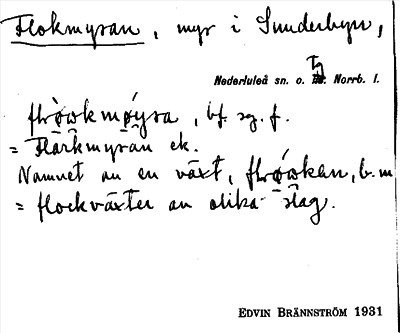 Flokmyran, myr i Sunderbyn,
Nederluleå sn. o. tg Norrb. l.
bf. sg. f.
= Flärkmyran ek.
Namnet av en växt, b. m
= flockväxter av olika slag.
EDVIN BRÄNNSTRÖM 1931